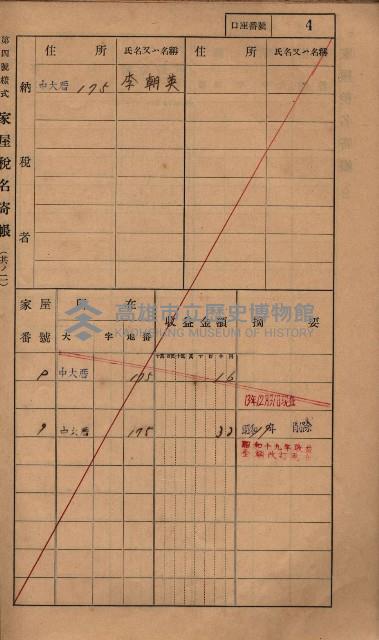 口座番號 4
第四號樣式 家屋稅名寄帳(共ノ二)
納稅者
住所 氏名又ハ名稱 住所 氏名又ハ名稱
中大厝 175 李朝英
家屋番號 所在 收益金額 摘要
大字 地番
高雄市立歷史博物館
KAOHSIUNG MUSEUM OF HISTORY
中大厝 175 16
13年12月31日現在
中大厝 175 32 削除
昭和十九年